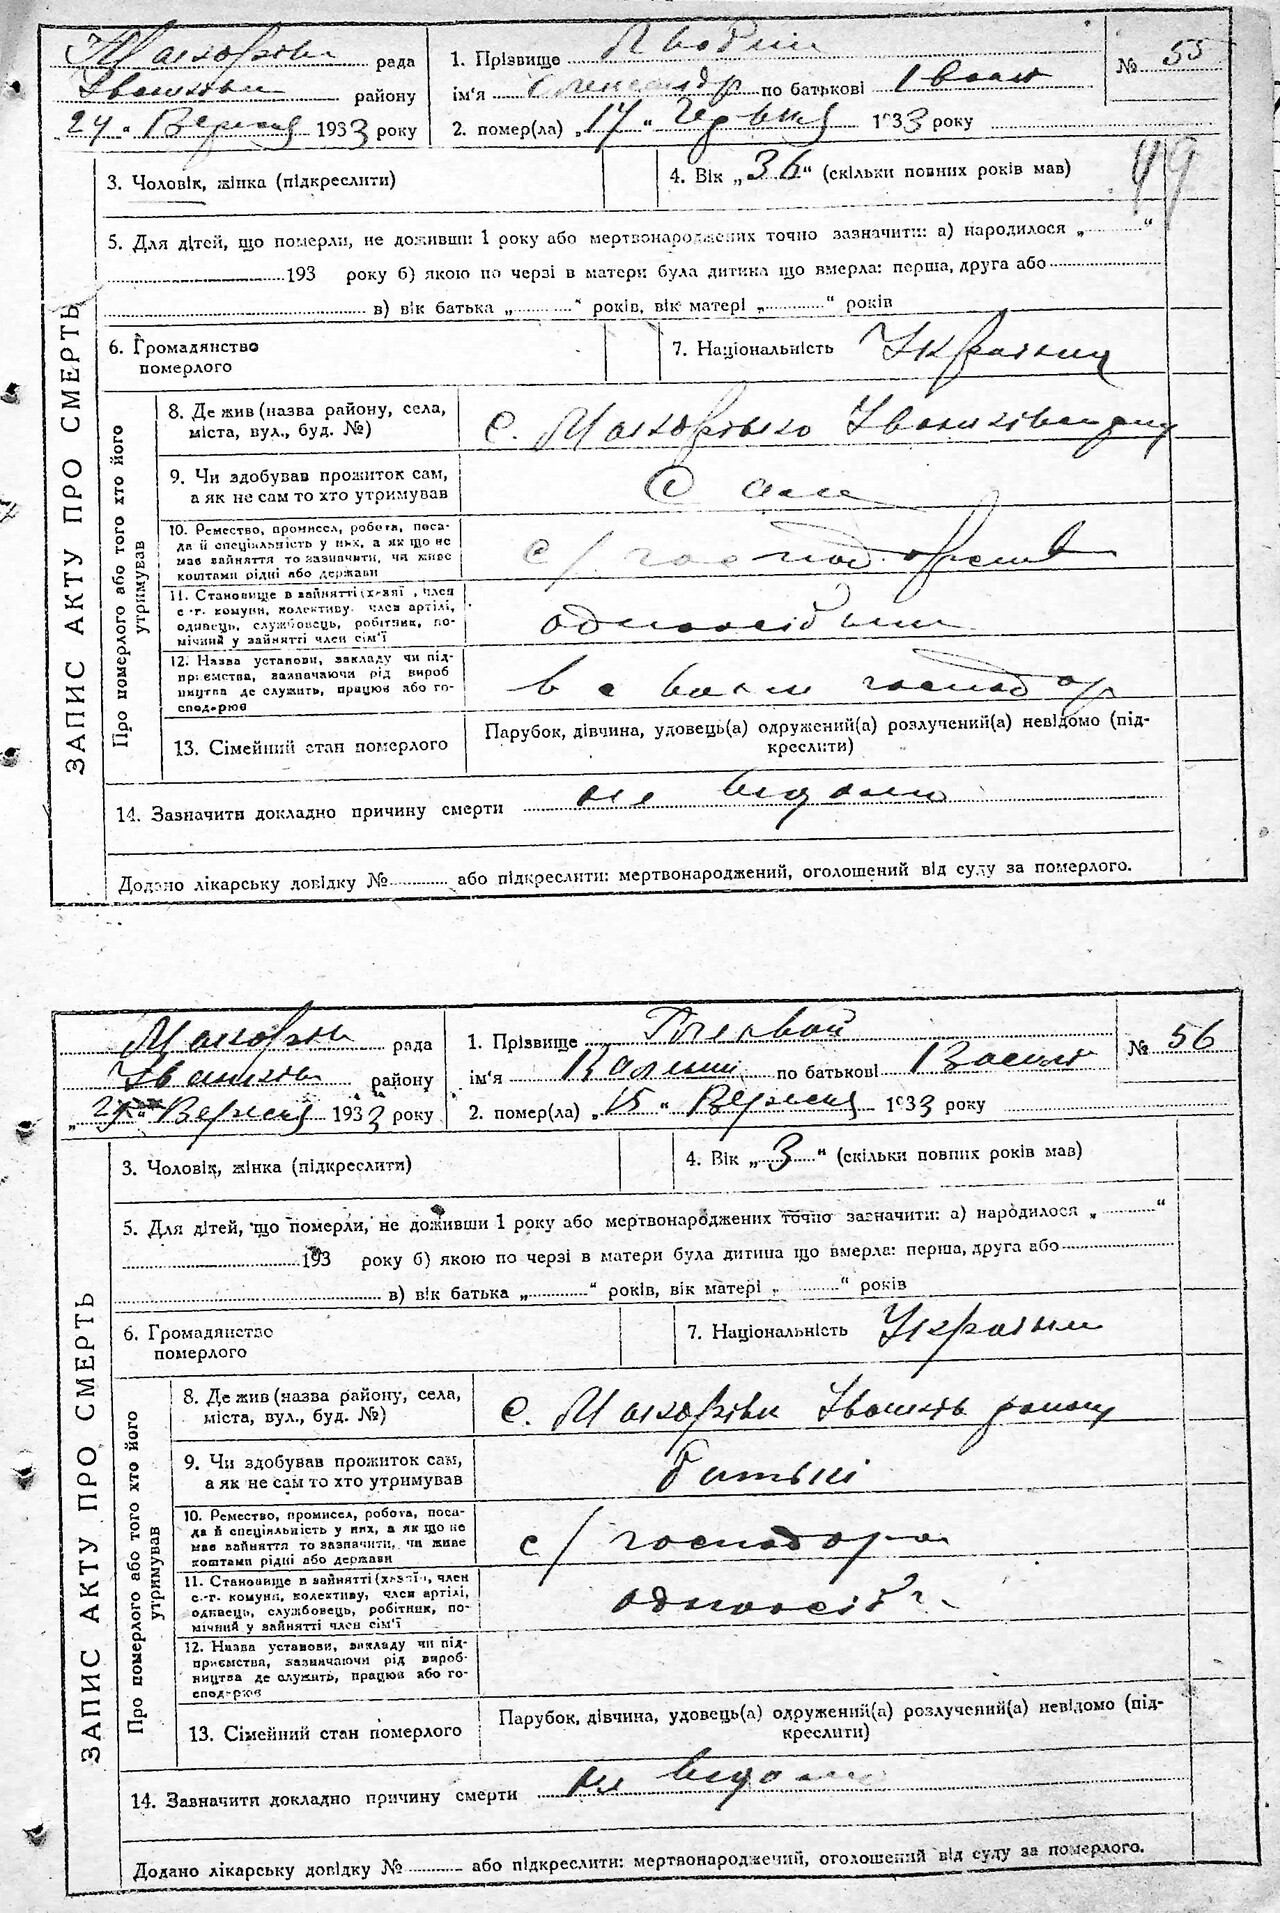 рада
району
24 " Вересня 1933 року
1. Прізвище
ім'я Олександр по батькові Івано
2. помер(ла) „17 " Червня 1933 року
№ 55
3. Чоловік, жінка (підкреслити)
4. Вік „36" (скільки повних років мав)
49
5. Для дітей, що померли, не доживши 1 року або мертвонароджених точно зазначити: а) народилося „ "
193 року б) якою по черзі в матери була дитина що вмерла: перша, друга або
в) вік батька „ " років, вік матері „ " років
6. Громадянство
померлого
7. Національність Українец
ЗАПИС АКТУ ПРО СМЕРТЬ
Про померлого або того хто його
утримував
8. Де жив (назва району, села,
міста, вул., буд. №)
с.
9. Чи здобував прожиток сам,
а як не сам то хто утримував
Сам
10. Ремество, промисел, робота, поса-
да й спеціяльність у них, а як що не
має зайняття то зазначити, чи живе
коштами рідні або держави
с/господарств
11. Становище в зайнятті (хазяї , член
с-г. комуни, колективу, член артілі,
одинець, службовець, робітник, по-
мічний у зайнятті член сім'ї
одноосібник
12. Назва установи, закладу чи під-
приємства, зазначаючи рід вироб
ництва де служить, працює або го-
сподарює
в своем господар
13. Сімейний стан померлого
Парубок, дівчина, удовець(а) одружений(а) розлучений(а) невідомо (під-
креслити)
14. Зазначити докладно причину смерти не відомо
Додано лікарську довідку № або підкреслити: мертвонароджений, оголошений від суду за померлого.
рада
району
„ " Вересня 1933 року
1. Прізвище
ім'я по батькові Васил
2. помер(ла) „15 " Вересня 1933 року
№ 56
3. Чоловік, жінка (підкреслити)
4. Вік „3" (скільки повних років мав)
5. Для дітей, що померли, не доживши 1 року або мертвонароджених точно зазначити: а) народилося „ "
193 року б) якою по черзі в матери була дитина що вмерла: перша, друга або
в) вік батька „ " років, вік матері „ " років
6. Громадянство
померлого
7. Національність
ЗАПИС АКТУ ПРО СМЕРТЬ
Про померлого або того хто його
утримував
8. Де жив (назва району, села,
міста, вул., буд. №)
с. району
9. Чи здобував прожиток сам,
а як не сам то хто утримував
батькі
10. Ремество, промисел, робота, поса-
да й спеціяльність у них, а як що не
має зайняття то зазначити, чи живе
коштами рідні або держави
с/господара
11. Становище в зайнятті (хазяїн, член
с.-г. комуни, колективу, член артілі,
одинець, службовець, робітник, по-
мічний у зайнятті член сім'ї
одноосіб
12. Назва установи, закладу чи під-
приємства, зазначаючи рід вироб-
ництва де служить, працює або го-
сподарює
13. Сімейний стан померлого
Парубок, дівчина, удовець(а) одружений(а) розлучений(а) невідомо (під-
креслити)
14. Зазначити докладно причину смерти не відомо
Додано лікарську довідку № або підкреслити: мертвонароджений, оголошений від суду за померлого.